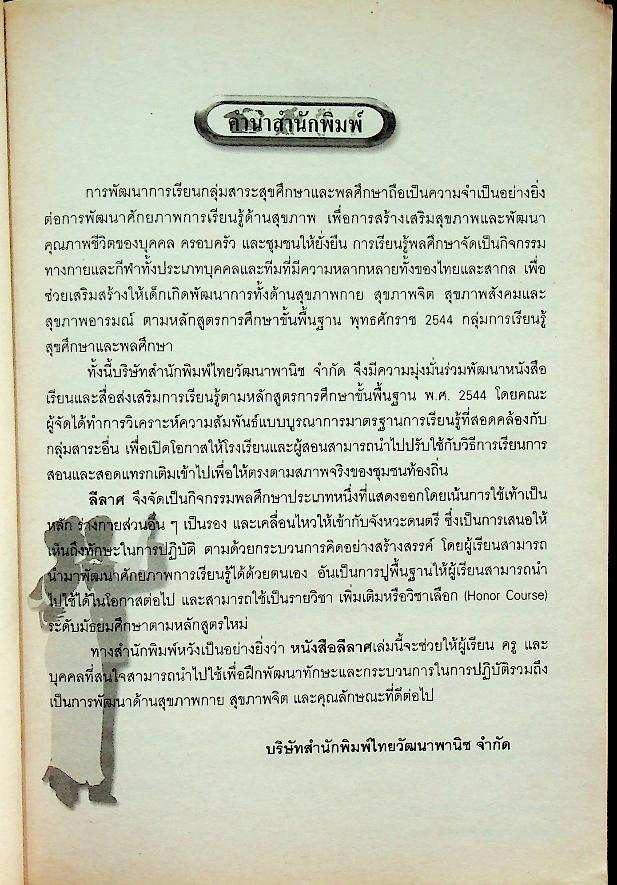 คำนำสำนักพิมพ์
การพัฒนาการเรียนกลุ่มสาระสุขศึกษาและพลศึกษาถือเป็นความจำเป็นอย่างยิ่ง
ต่อการพัฒนาศักยภาพการเรียนรู้ด้านสุขภาพ เพื่อการสร้างเสริมสุขภาพและพัฒนา
คุณภาพชีวิตของบุคคล ครอบครัว และชุมชนให้ยั่งยืน การเรียนรู้พลศึกษาจัดเป็นกิจกรรม
ทางกายและกีฬาทั้งประเภทบุคคลและทีมที่มีความหลากหลายทั้งของไทยและสากล เพื่อ
ช่วยเสริมสร้างให้เด็กเกิดพัฒนาการทั้งด้านสุขภาพกาย สุขภาพจิต สุขภาพสังคมและ
สุขภาพอารมณ์ ตามหลักสูตรการศึกษาขั้นพื้นฐาน พุทธศักราช 2544 กลุ่มการเรียนรู้
สุขศึกษาและพลศึกษา
ทั้งนี้บริษัทสำนักพิมพ์ไทยวัฒนาพานิช จำกัด จึงมีความมุ่งมั่นร่วมพัฒนาหนังสือ
เรียนและสื่อส่งเสริมการเรียนรู้ตามหลักสูตรการศึกษาขั้นพื้นฐาน พ.ศ. 2544 โดยคณะ
ผู้จัดได้ทำการวิเคราะห์ความสัมพันธ์แบบบูรณาการมาตรฐานการเรียนรู้ที่สอดคล้องกับ
กลุ่มสาระอื่น เพื่อเปิดโอกาสให้โรงเรียนและผู้สอนสามารถนำไปปรับใช้กับวิธีการเรียนการ
สอนและสอดแทรกเติมเข้าไปเพื่อให้ตรงตามสภาพจริงของชุมชนท้องถิ่น
ลีลาศ จึงจัดเป็นกิจกรรมพลศึกษาประเภทหนึ่งที่แสดงออกโดยเน้นการใช้เท้าเป็น
หลัก ร่างกายส่วนอื่น ๆ เป็นรอง และเคลื่อนไหวให้เข้ากับจังหวะดนตรี ซึ่งเป็นการเสนอให้
เห็นถึงทักษะในการปฏิบัติ ตามด้วยกระบวนการคิดอย่างสร้างสรรค์ โดยผู้เรียนสามารถ
นำมาพัฒนาศักยภาพการเรียนรู้ได้ด้วยตนเอง อันเป็นการปูพื้นฐานให้ผู้เรียนสามารถนำ
ไปใช้ได้ในโอกาสต่อไป และสามารถใช้เป็นรายวิชา เพิ่มเติมหรือวิชาเลือก (Honor Course)
ระดับมัธยมศึกษาตามหลักสูตรใหม่
ทางสำนักพิมพ์หวังเป็นอย่างยิ่งว่า หนังสือลีลาศเล่มนี้จะช่วยให้ผู้เรียน ครู และ
บุคคลที่สนใจสามารถนำไปใช้เพื่อฝึกพัฒนาทักษะและกระบวนการในการปฏิบัติรวมถึง
เป็นการพัฒนาด้านสุขภาพกาย สุขภาพจิต และคุณลักษณะที่ดีต่อไป
บริษัทสำนักพิมพ์ไทยวัฒนาพานิช จำกัด